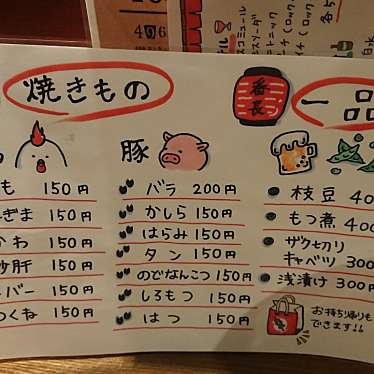 焼きもの
も 150円
ぎま 150円
かわ 150円
砂肝 150円
バー 150円
つくね 150円
豚
バラ 200円
かしら 150円
はらみ 150円
タン 150円
のどなんこつ 150円
しろもつ 150円
はつ 150円
番長
一品
枝豆 40
もつ煮 400
ザク切り
キャベツ 300
浅漬け 300円
お持ち帰りも
できます!!